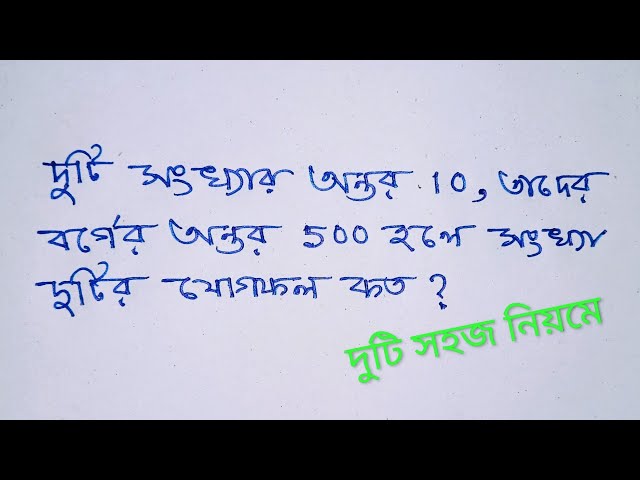 দুটি সংখ্যার অন্তর 10, তাদের
বর্গের অন্তর 500 হলে সংখ্যা
দুটির যোগফল কত ?
দুটি সহজ নিয়মে